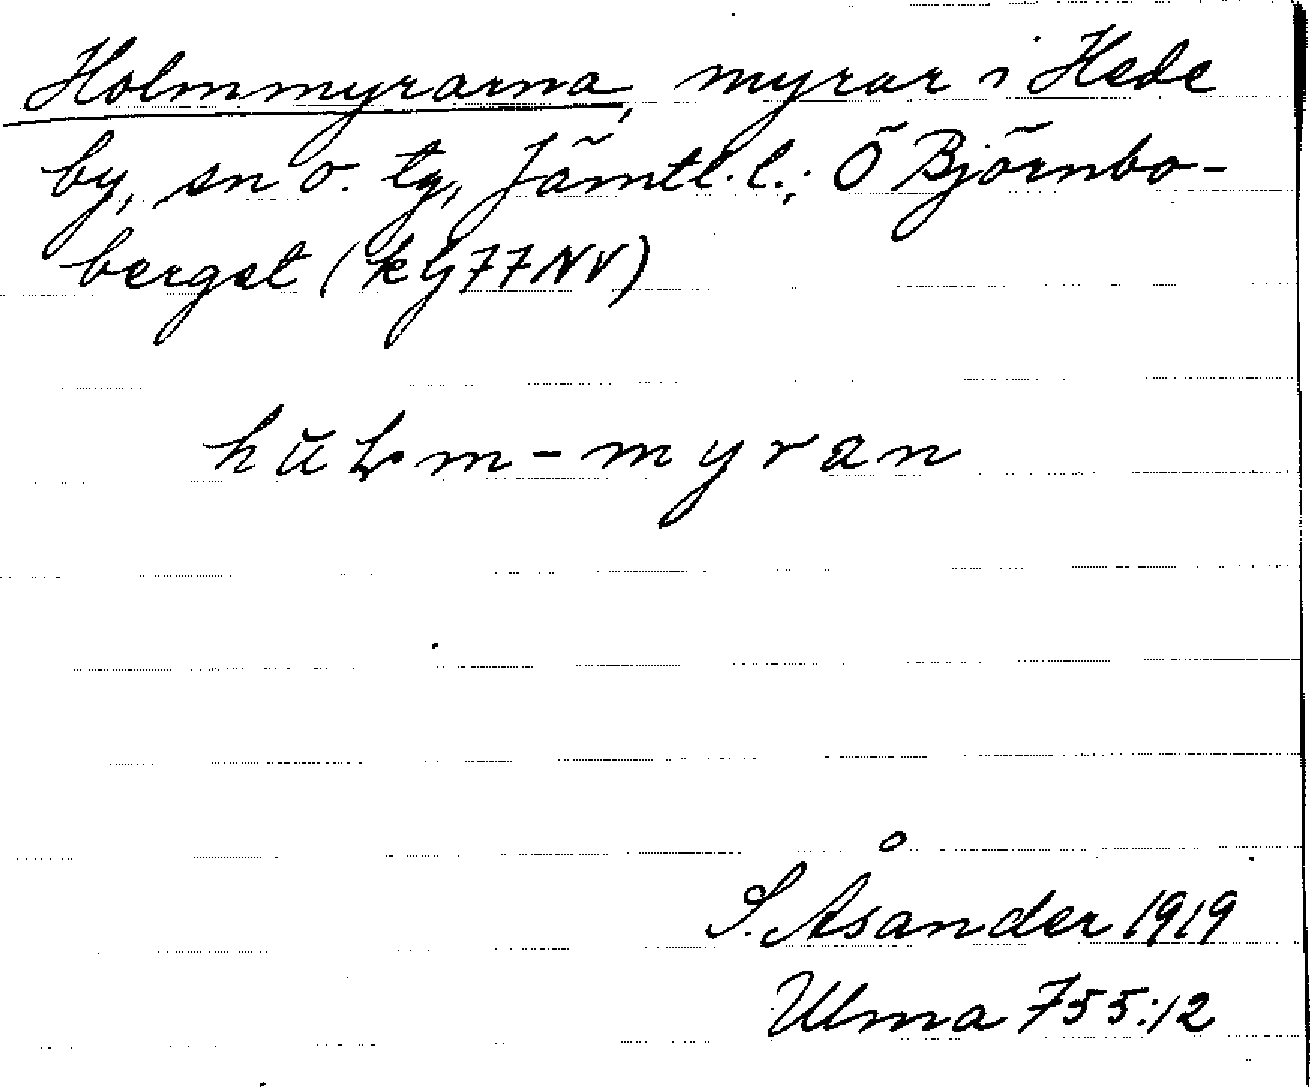 Holmmyrarna, myrar i Hede
by, sn o. tg, Jämtl. l.; Ö Björnbo-
berget (k G 77 NV)
hŭɫm-myran
S. Åsander 1919
Ulma 755:12